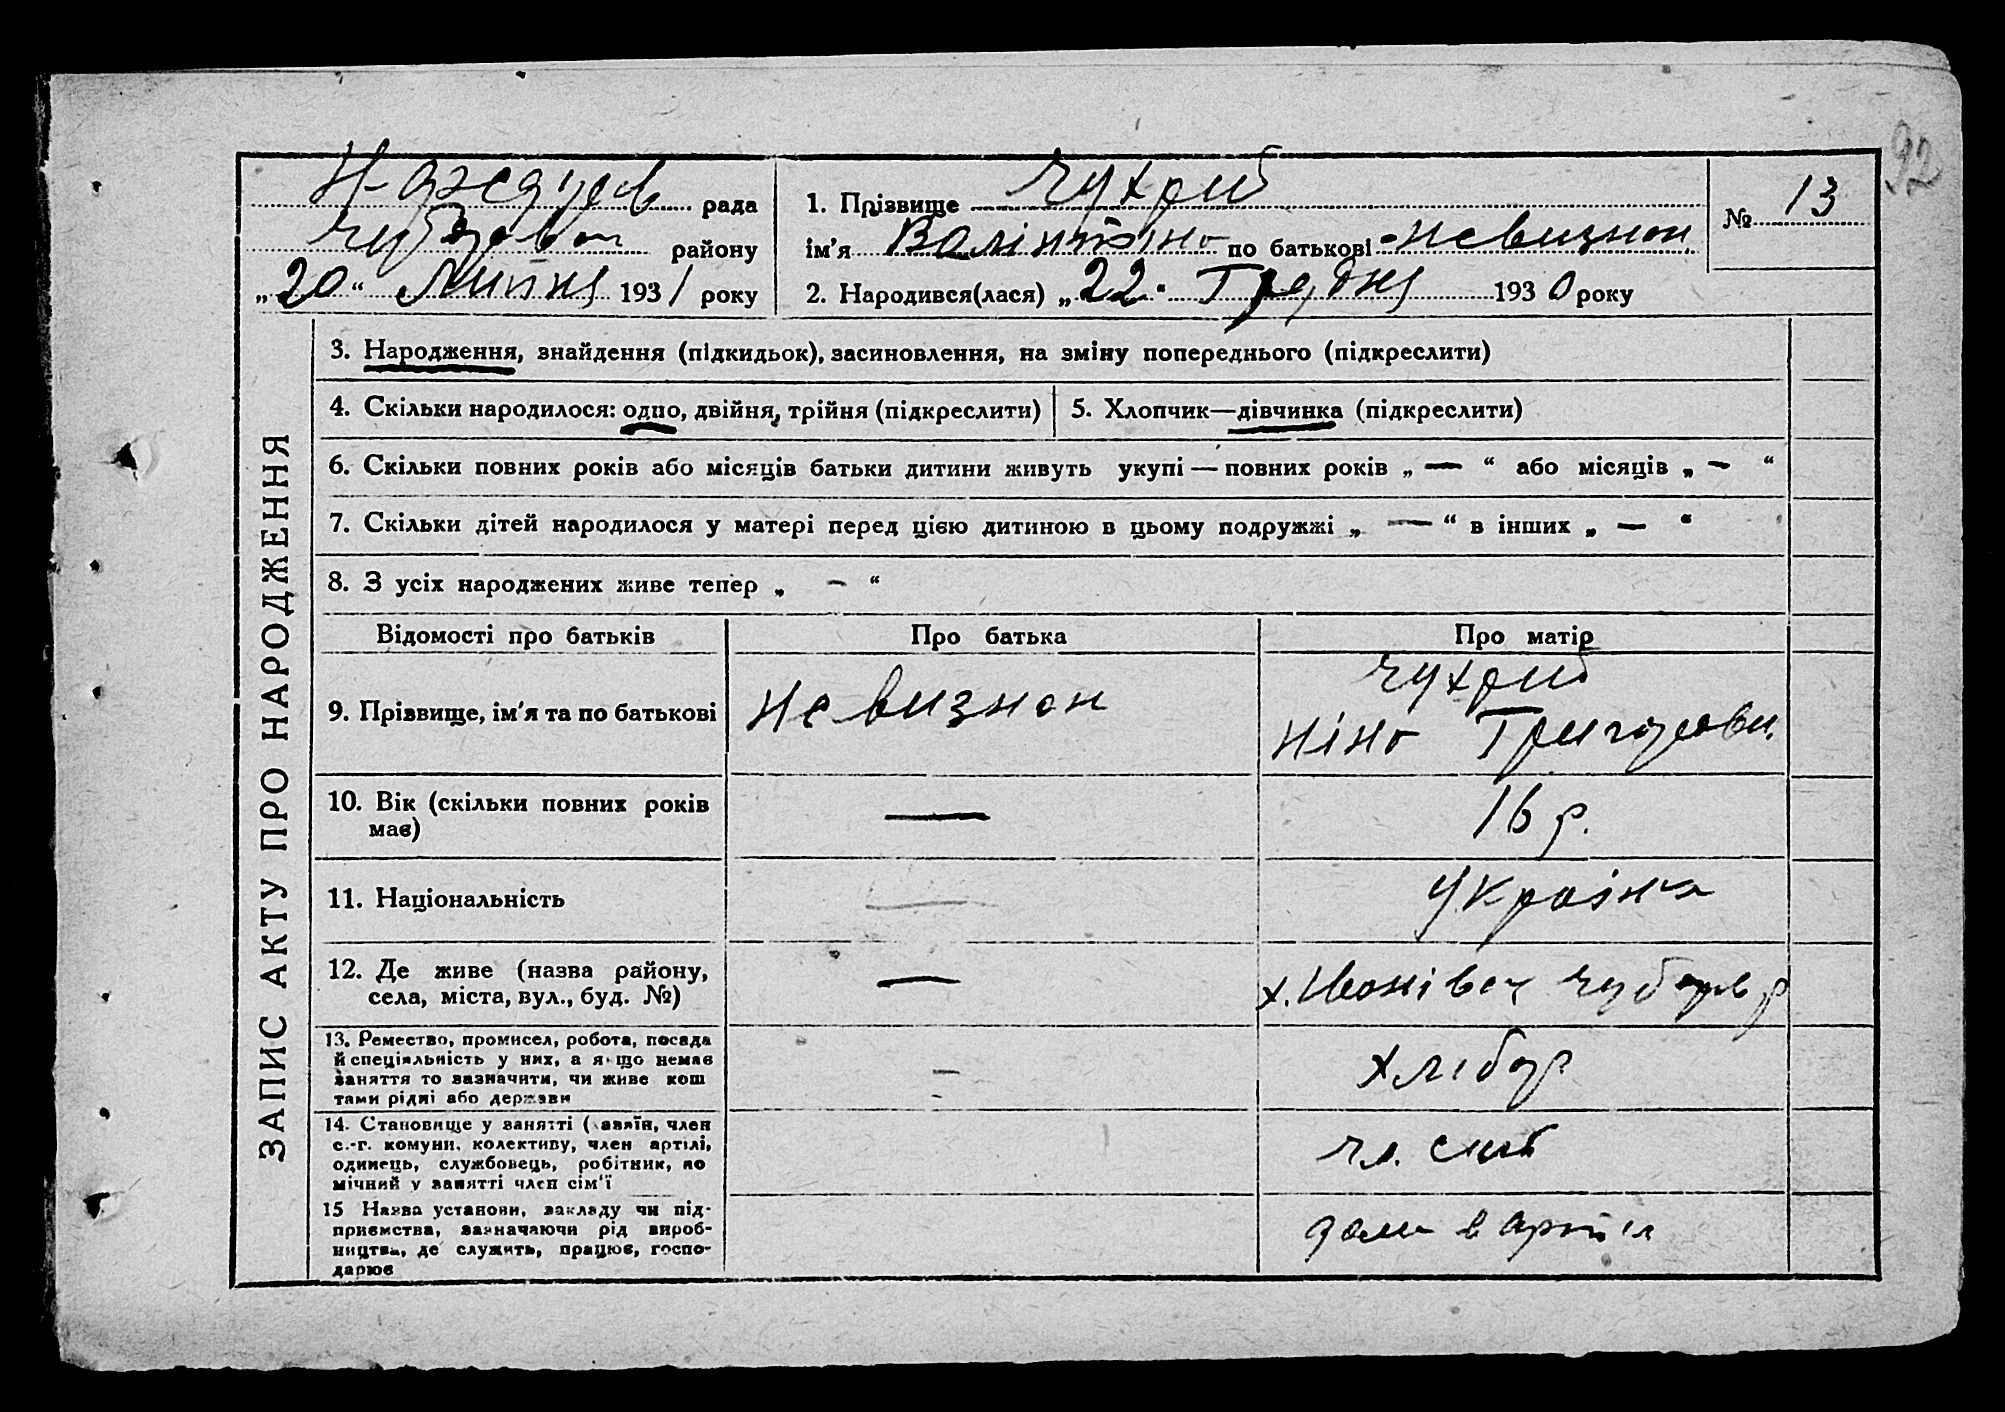 92
рада
району
„20“ Липня 1931 року
1. Прізвище Чухриб
ім’я Валінтіно по батькові невизнан
2. Народився(лася) „22“ Грудня 1930 року
№ 13
ЗАПИС АКТУ ПРО НАРОДЖЕННЯ
3. Народження, знайдення (підкидьок), засиновлення, на зміну попереднього (підкреслити)
4. Скільки народилося: одно, двійня, трійня (підкреслити)
5. Хлопчик—дівчинка (підкреслити)
6. Скільки повних років або місяців батьки дитини живуть укупі — повних років „ — “ або місяців „ — “
7. Скільки дітей народилося у матері перед цією дитиною в цьому подружжі „ — “ в інших „ — “
8. З усіх народжених живе тепер „ - “
Відомості про батьків Про батька Про матір
9. Прізвище, ім’я та по батькові
невизнан
Чухриб
Ніно Григорови.
10. Вік (скільки повних років
має)
—
16 р.
11. Національність
—
Українка
12. Де живе (назва району,
села, міста, вул., буд. №)
—
х. р
13. Ремество, промисел, робота, посада
й спеціяльність у них, а якщо немає
заняття то зазначити, чи живе кош
тами рідні або держави
-
Хлібор
14. Становище у занятті (хазяїн, член
с.-г. комуни, колективу, член артілі,
одинець, службовець, робітник, по
мічний у занятті член сім’ї
чл. сим
15 Назва установи, закладу чи під-
приємства, зазначаючи рід вироб-
ництва, де служить, працює, госпо-
дарює
в артіл